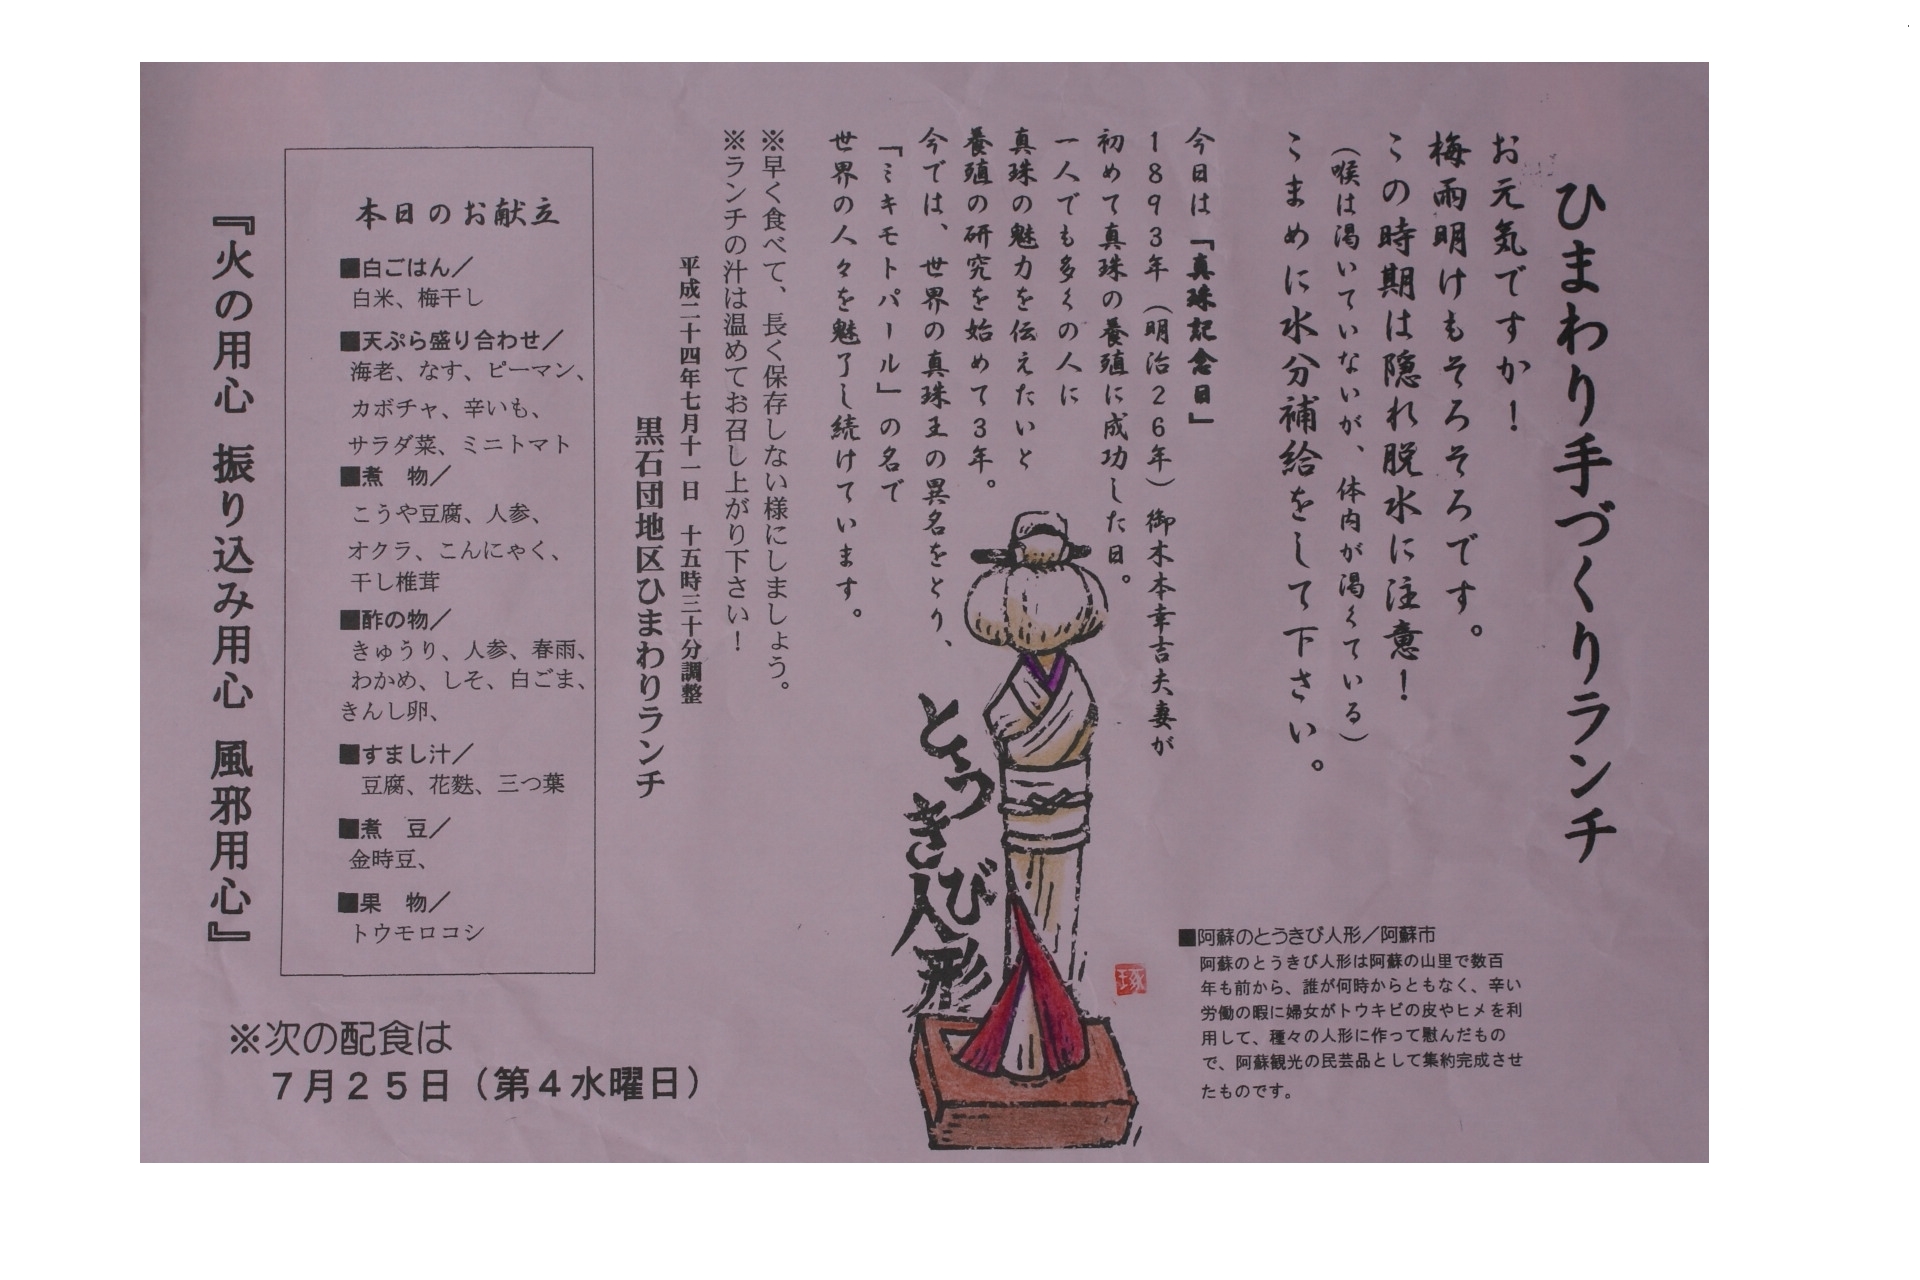 ひまわり手づくりランチ
お元気ですか！
梅雨明けもそろそろです。
この時期は隠れ脱水に注意！
（喉は渇いていないが、体内が渇くている）
こまめに水分補給をして下さい。
今日は「真珠記念日」
1893年（明治26年）御木本幸吉夫妻が
初めて真珠の養殖に成功した日。
一人でも多くの人に
真珠の魅力を伝えたいと
養殖の研究を始めて3年。
今では、世界の真珠王の異名をとり、
「ミキモトパール」の名で
世界の人々を魅了し続けています。
とうきび人形
琢
■阿蘇のとうきび人形／阿蘇市
阿蘇のとうきび人形は阿蘇の山里で数百
年も前から、誰が何時からともなく、辛い
労働の暇に婦女がトウキビの皮やヒメを利
用して、種々の人形に作って慰んだもの
で、阿蘇観光の民芸品として集約完成させ
たものです。
※早く食べて、長く保存しない様にしましょう。
※ランチの汁は温めてお召し上がり下さい！
平成二十四年七月十一日　十五時三十分調整
黒石団地区ひまわりランチ
本日のお献立
■白ごはん／
白米、梅干し
■天ぷら盛り合わせ／
海老、なす、ピーマン、
カボチャ、辛いも、
サラダ菜、ミニトマト
■煮　物／
こうや豆腐、人参、
オクラ、こんにゃく、
干し椎茸
■酢の物／
きゅうり、人参、春雨、
わかめ、しそ、白ごま、
きんし卵、
■すまし汁／
豆腐、花麩、三つ葉
■煮　豆／
金時豆、
■果　物／
トウモロコシ
『火の用心 振り込み用心 風邪用心』
※次の配食は
７月２５日（第４水曜日）